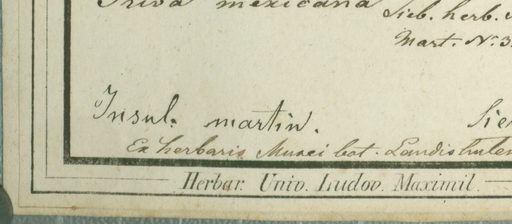 Priva mexicana
Sieb. herb.
Mart. N. 3
Insul. martin. Sie
Ex herbaris Musei bot. Landishuten
Herbar. Univ. Ludov. Maximil.